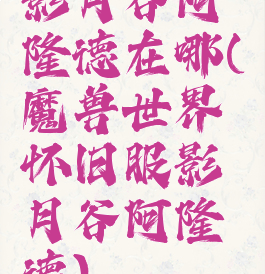 影月谷阿
隆德在哪(
魔兽世界
怀旧服影
月谷阿隆
德)